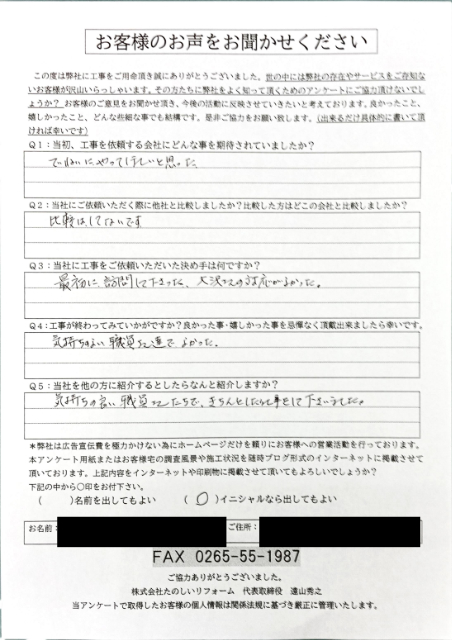 お客様のお声をお聞かせください
この度は弊社に工事をご用命頂き誠にありがとうございました。世の中には弊社の存在やサービスをご存知ない
お客様が沢山いらっしゃいます。その方たちに弊社をよく知って頂くためのアンケートにご協力頂けないでし
ょうか？ お客様のご意見をお聞かせ頂き、今後の活動に反映させていきたいと考えております。良かったこと、
嬉しかったこと、どんな些細な事でも結構です。是非ご協力をお願い致します。（出来るだけ具体的に書いて頂
ければ幸いです）
Q１：当初、工事を依頼する会社にどんな事を期待されていましたか？
ていねいにやってほしいと思った
Q２：当社にご依頼いただく際に他社と比較しましたか？比較した方はどこの会社と比較しましたか？
比較はしてないです
Q３：当社に工事をご依頼いただいた決め手は何ですか？
最初に訪問して下さった、大沢さんの対応がよかった。
Q４：工事が終わってみていかがですか？良かった事・嬉しかった事を忌憚なく頂戴出来ましたら幸いです。
気持ちのよい職員さん達でよかった。
Q５：当社を他の方に紹介するとしたらなんと紹介しますか？
気持ちの良い職員さんたちで、きちんとした仕事をして下さいました。
＊弊社は広告宣伝費を極力かけない為にホームページだけを頼りにお客様への営業活動を行っております。
本アンケート用紙またはお客様宅の調査風景や施工状況を随時ブログ形式のインターネットに掲載させて
頂いております。上記内容をインターネットや印刷物に掲載させて頂いてもよろしいでしょうか？
下記の中から〇印をお付下さい。
（　　）名前を出してもよい　（ 〇 ）イニシャルなら出してもよい
お名前： ご住所：
FAX 0265-55-1987
ご協力ありがとうございました。
株式会社たのしいリフォーム 代表取締役 遠山秀之
当アンケートで取得したお客様の個人情報は関係法規に基づき厳正に管理いたします。